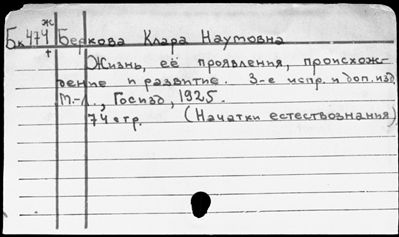 ж
Бк474 Беркова Клара Наумовна
Жизнь, её проявления, происхож-
дение и развитие. 3-е испр. и доп. изд.
М.-Л., Госизд, 1925.
74 стр. (Начатки естествознания)